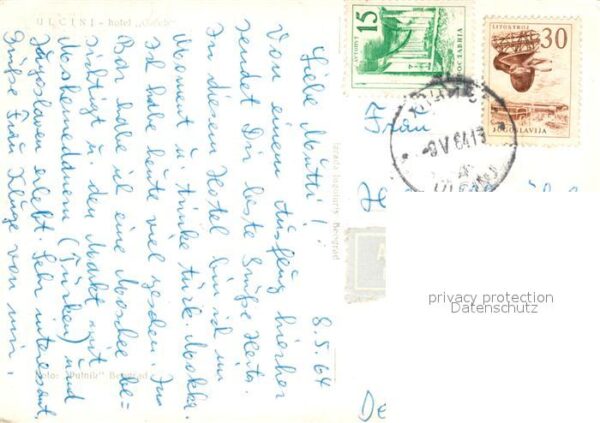 ULCINJ - hotel „Galeb"
8.5.64
Liebe Mutti!
Von einem Ausflug hierher
sendet Dir beste Grüße Herta.
In diesem Hotel bin ich im
Moment u. trinke türk. Mokka.
Ich habe heute viel gesehen. In
Bar habe ich eine Moschee be=
sichtigt u. den Markt mit
Mohameddanern (Türken) und
Jugoslaven erlebt. Sehr interessant.
Grüße Frau Kluge von mir.
Foto: "Putnik" Beograd
Beograd
Frau
De
15
JUGOSLAVIJA
30
JUGOSLAVIJA
privacy protection
Datenschutz